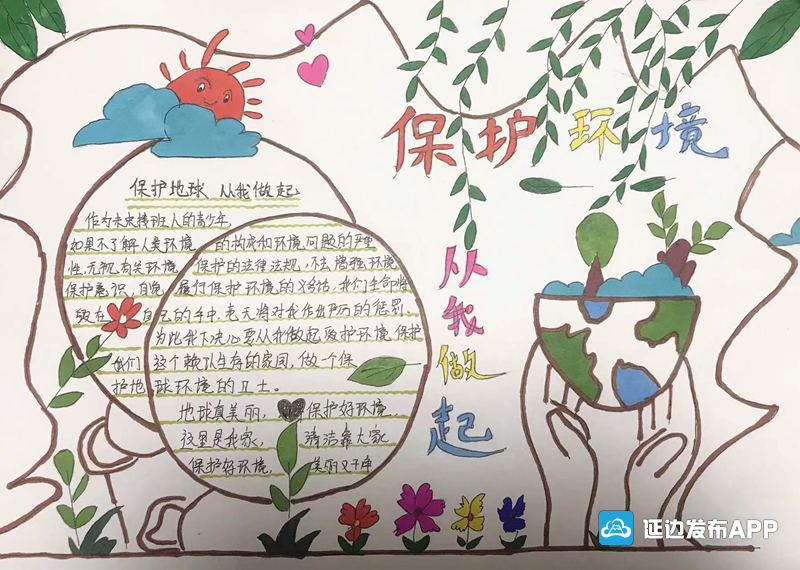 保护环境
从我做起
保护地球 从我做起
作为未来接班人的青少年,
如果不了解人类环境 的构成和环境问题的严重
性,无视有关环境 保护的法律法规,不去增强环境
保护意识,自觉 履行保护环境的义务的话,我们生命将
毁在 自己的手中,老天将对我作出严厉的惩罚
为此我下决心要从我做起爱护环境,保护
我们 这个赖以生存的家园,做一个保
护地 球环境的卫士。
地球真美丽, 保护好环境
这里是我家, 清洁靠大家
保护好环境, 美丽又干净
延边发布APP